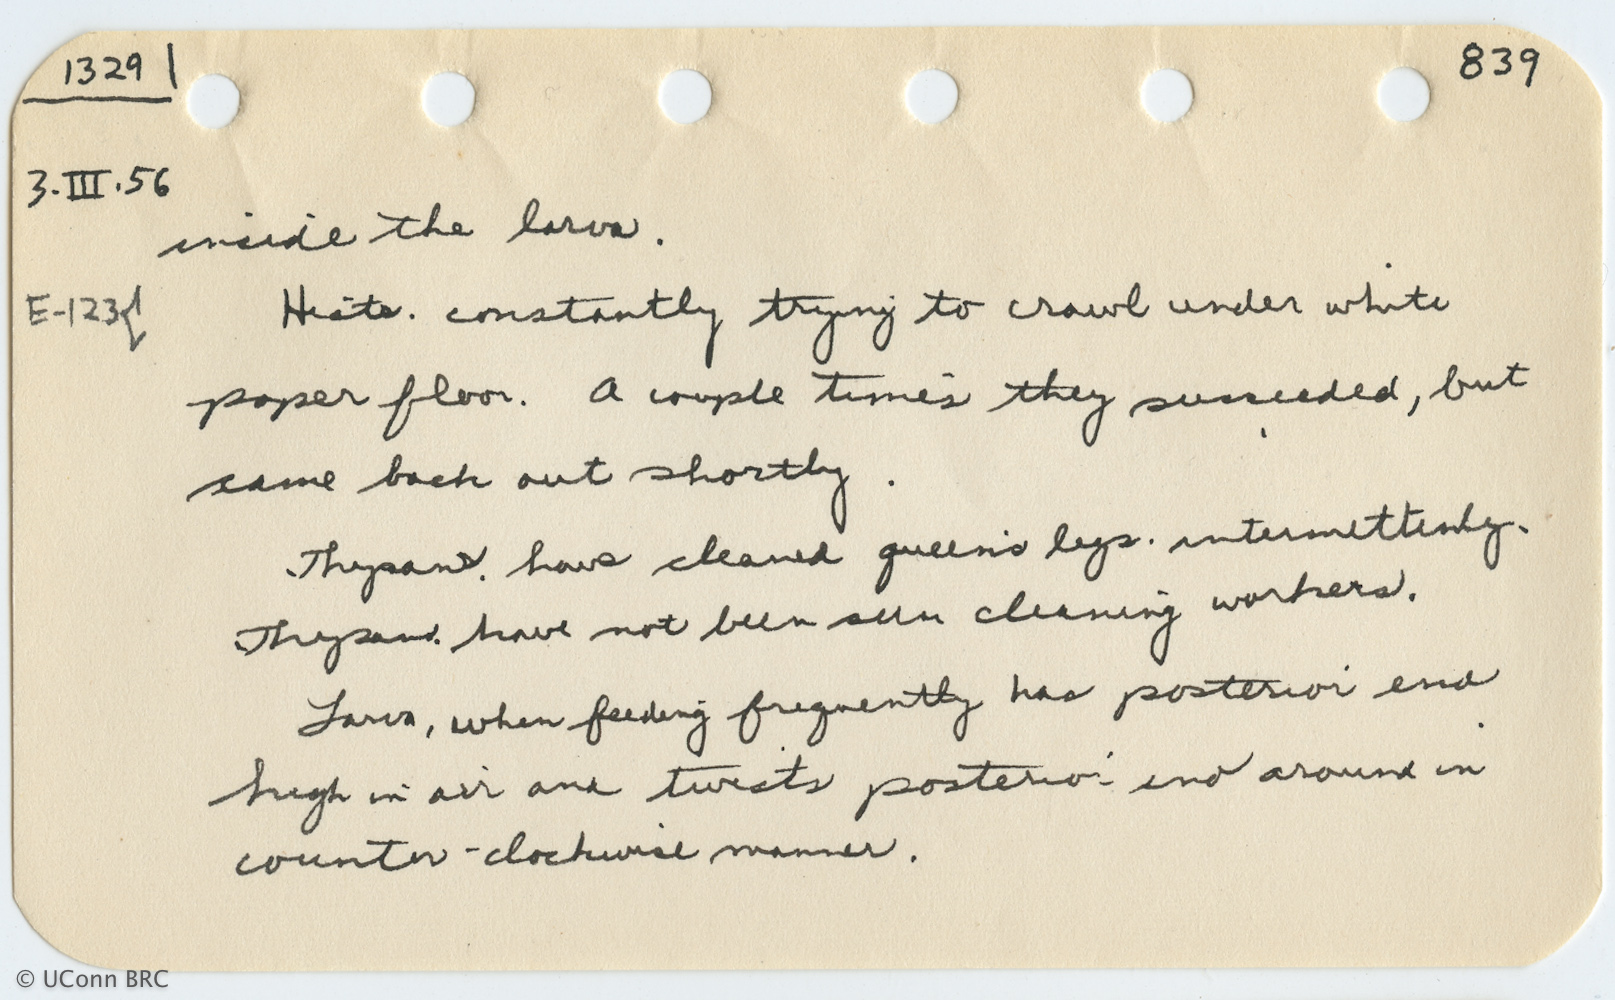 1329
839
3.III.56
inside the larva.
E-123{
Hists. constantly trying to crawl under white
paper floor. A couple times they succeeded, but
came back out shortly.
Thysans. have cleaned queen's legs. intermittently.
Thysans. have not been seen cleaning workers.
Larva, when feeding frequently has posterior end
high in air and twists posterior end around in
counter-clockwise manner.
© UConn BRC